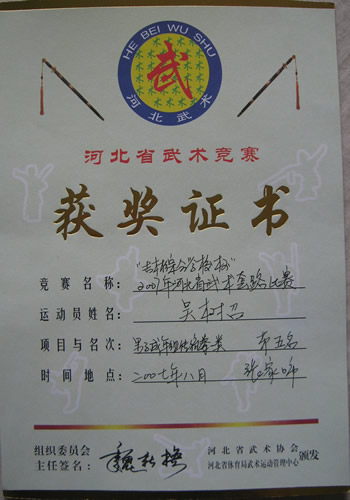 HE BEI WU SHU
武
河北武术
河北省武术竞赛
获奖证书
竞赛名称：2007年河北省武术套路比赛
运动员姓名：吴树招
项目与名次：男子成年组传统拳类 第五名
时间地点：二00七年八月 张家口
组织委员会
主任签名：
河北省武术协会
河北省体育局武术运动管理中心
颁发